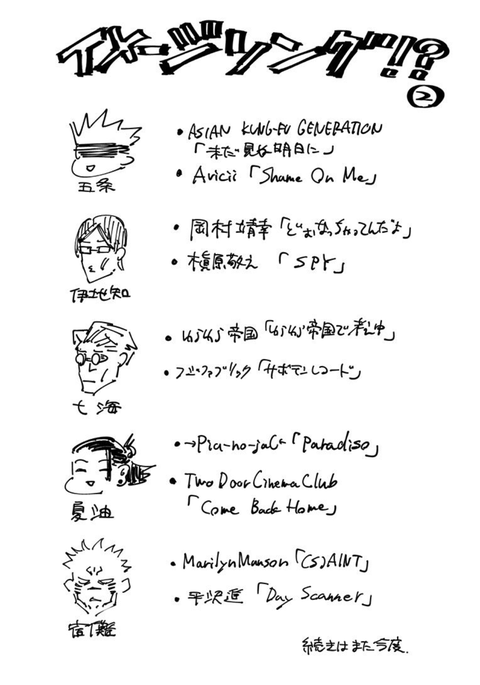 イメージソング!!?
②
五条
・ASIAN KUNG-FU GENERATION
「未だ見ぬ明日に」
・Avicii「Shame On Me」
伊地知
・岡村靖幸「どぉなっちゃってんだよ」
・槇原敬之「SPY」
七海
・ゆらゆら帝国「ゆらゆら帝国で考え中」
・フジファブリック「サボテンレコード」
夏油
・→Pia-no-jaC←「Paradiso」
・Two Door Cinema Club
「Come Back Home」
宿儺
・Marilyn Manson「(S)AINT」
・平沢進「Day Scanner」
続きはまた今度.